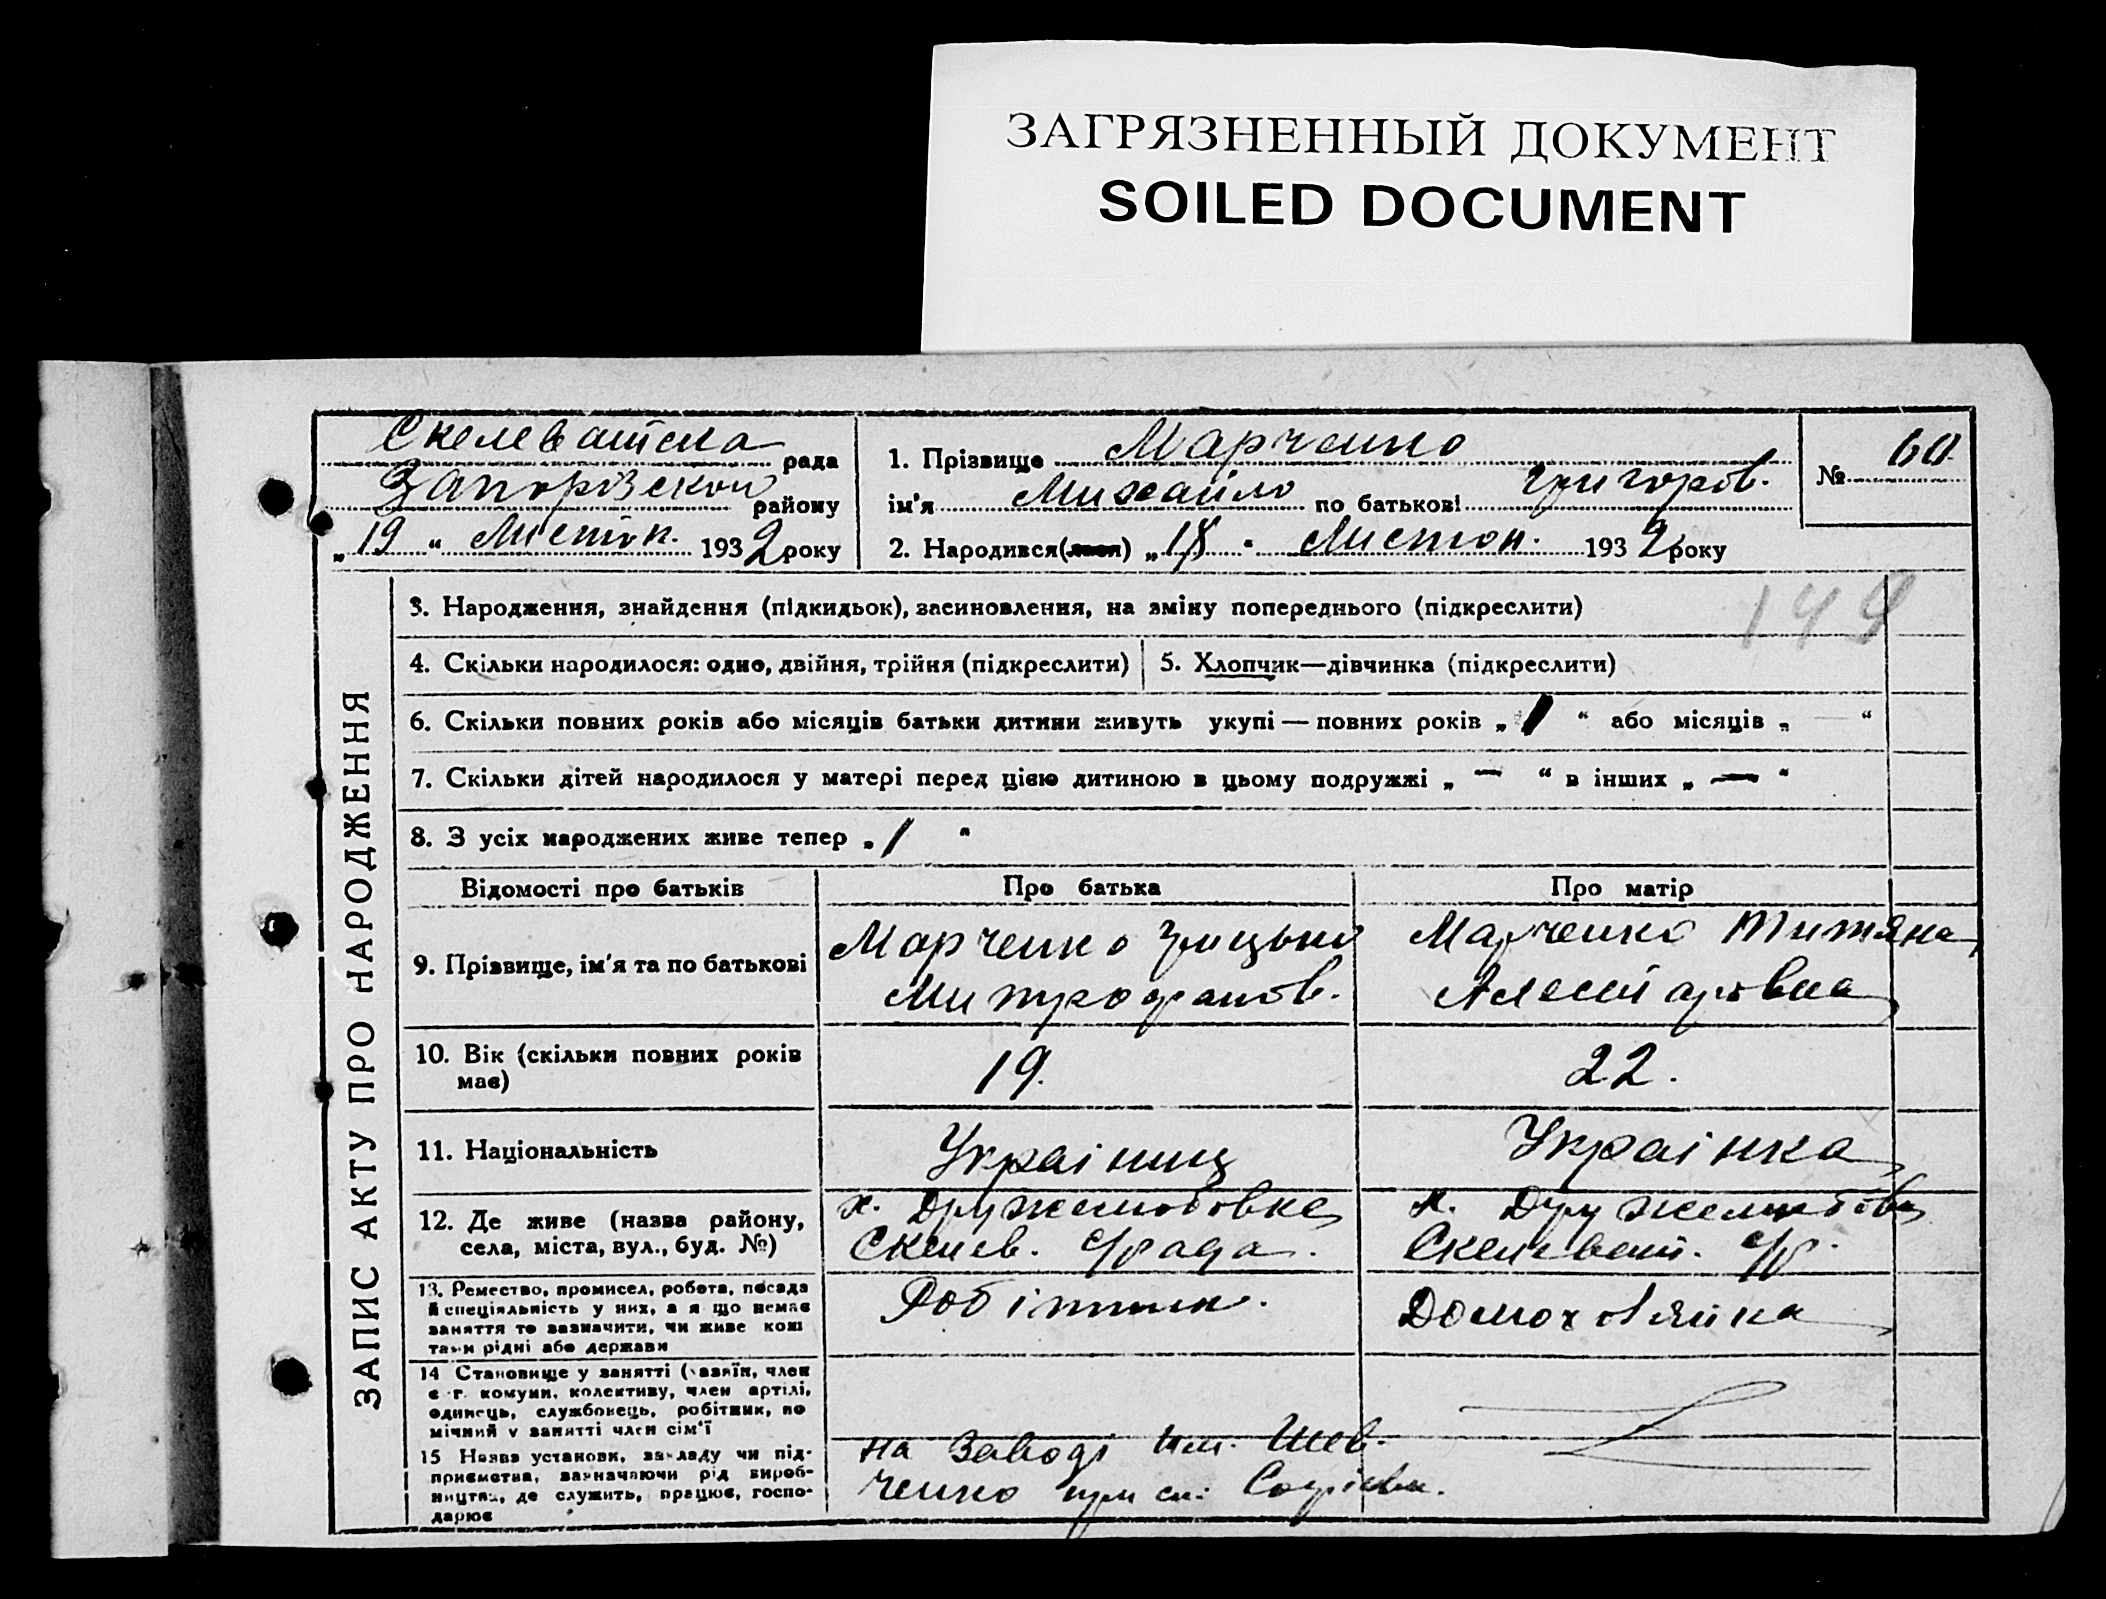 ЗАГРЯЗНЕННЫЙ ДОКУМЕНТ
SOILED DOCUMENT
Скелеватска рада
Запорізского району
„ 19 “ Листоп. 1932 року
1. Прізвище Марченко
ім'я Михайло по батькові Григоров.
2. Народився(лася) „ 18 “ Листоп. 1932 року
№ 60
149
ЗАПИС АКТУ ПРО НАРОДЖЕННЯ
3. Народження, знайдення (підкидьок), засиновлення, на зміну попереднього (підкреслити)
4. Скільки народилося: одно, двійня, трійня (підкреслити)
5. Хлопчик—дівчинка (підкреслити)
6. Скільки повних років або місяців батьки дитини живуть укупі — повних років „ 1 “ або місяців „ — “
7. Скільки дітей народилося у матері перед цією дитиною в цьому подружжі „ — “ в інших „ — “
8. З усіх народжених живе тепер „ 1 “
Відомості про батьків
Про батька
Про матір
9. Прізвище, ім'я та по батькові
Марченко Грицько
Митрофанов.
Марченко Титяна
10. Вік (скільки повних років
має)
19.
22.
11. Національність
Українец
Українка
12. Де живе (назва району,
села, міста, вул., буд. №)
х. Дружелюбовка
Скелев. с/рада.
х. Дружелюбовка
Скелеват. с/р.
13. Ремество, промисел, робота, посада
й спеціяльність у них, а я що немає
заняття то зазначити, чи живе кош
тами рідні або держави
Робітник.
Домохозяйка
14 Становище у занятті (хазяїн, член
с.-г. комуни, колективу, член артілі,
одинець, службовець, робітник, по
мічний у занятті член сім'ї
15 Назва установи, закладу чи під-
приємства, зазначаючи рід вироб-
ництва, де служить, працює, госпо-
дарює
на Заводі им. Шев-
ченко при ст. Софіевк.